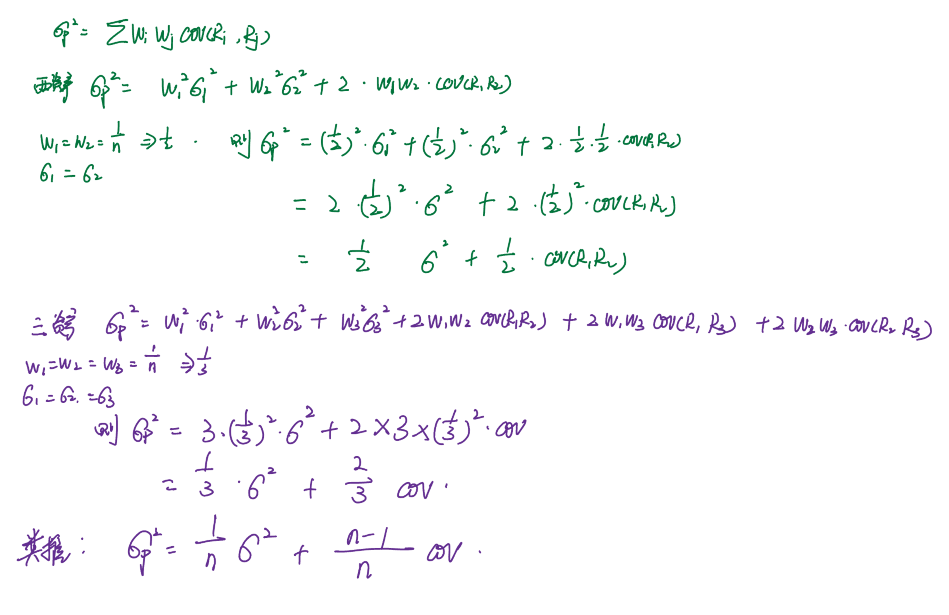 σp² = ΣWi Wj cov(Ri, Rj)
σp² = W₁²σ₁² + W₂²σ₂² + 2 · W₁W₂ · cov(R₁R₂)
W₁ = W₂ = 1/n ⇒ 1/2 . 则 σp² = (1/2)² · σ₁² + (1/2)² · σ₂² + 2 · 1/2 · 1/2 · cov(R₁R₂)
σ₁ = σ₂
= 2 · (1/2)² · σ² + 2 · (1/2)² · cov(R₁R₂)
= 1/2 σ² + 1/2 · cov(R₁R₂)
三 σp² = W₁² · σ₁² + W₂²σ₂² + W₃²σ₃² + 2W₁W₂ cov(R₁R₂) + 2W₁W₃ cov(R₁ R₃) + 2W₂W₃ · cov(R₂ R₃)
W₁ = W₂ = W₃ = 1/n ⇒ 1/3
σ₁ = σ₂ = σ₃
则 σp² = 3 · (1/3)² · σ² + 2 × 3 × (1/3)² · cov
= 1/3 · σ² + 2/3 cov .
类推: σp² = 1/n σ² + (n-1)/n cov .